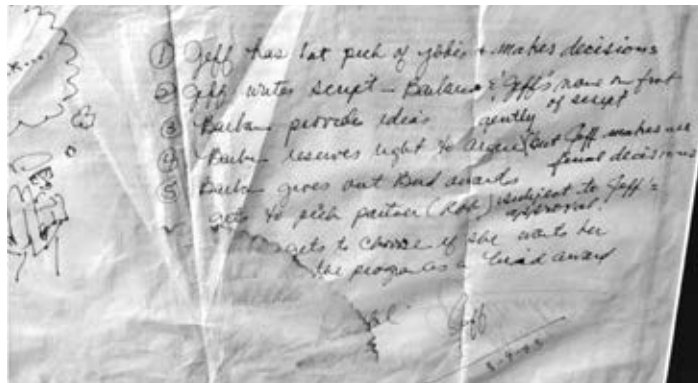 ① Jeff has 1st pick of jokes + makes decisions
② Jeff writes script - Barbara & Jeff's name on front of script
③ Barbara provides ideas
④ Barbara reserves right to argue gently (but Jeff makes final decisions
⑤ Barbara gives out Bird awards
gets to pick partner (Rob) subject to Jeff's approval.
gets to choose if she wants her
the program as a bird award
Jeff